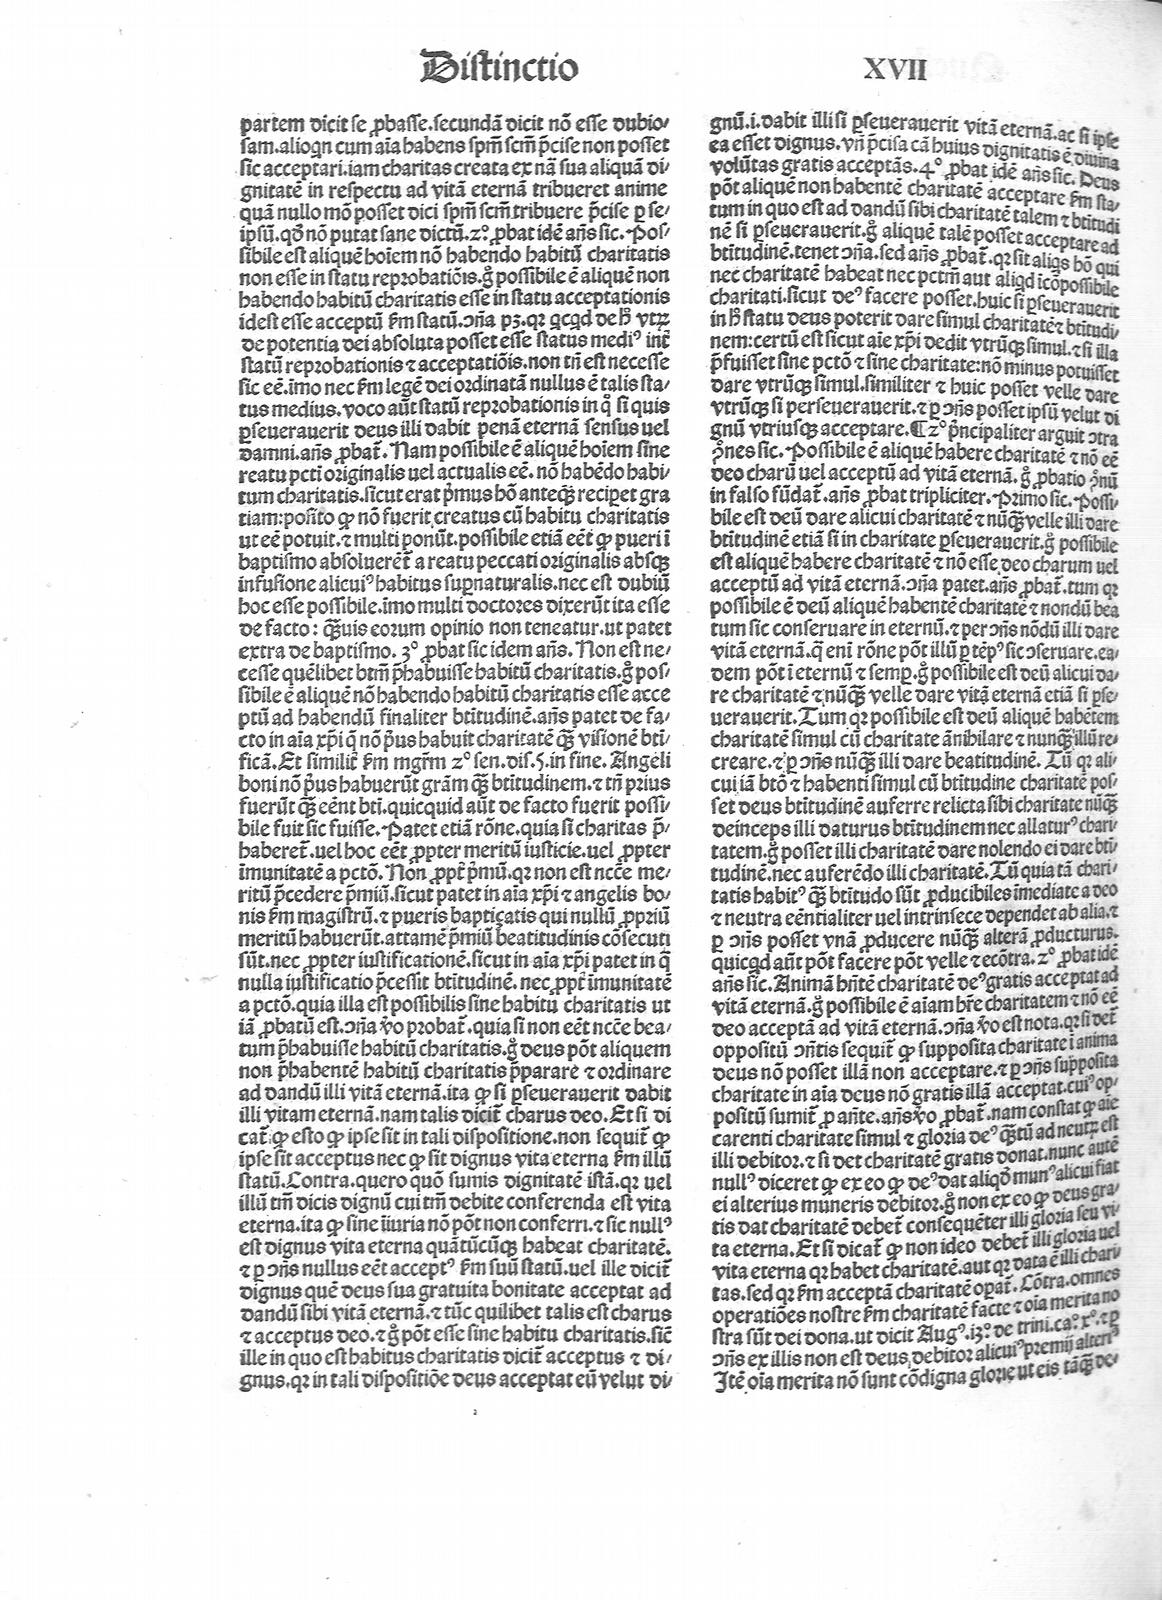 Distinctio XVII
partem dicit se ꝓbasse.secundã dicit nõ esse dubio/
sam.alioqn cum aĩa habens spm̃ scm̃ p̃cise non posset
sic acceptari.iam charitas creata ex nã sua aliquã di/
gnitatẽ in respectu ad vitã eternã tribueret anime
quã nullo mõ posset dici spm̃ scm̃ tribuere p̃cise ꝑ se/
ipsũ.qđ nõ putat sane dictũ.2º ꝓbat idẽ añs sic.Pos/
sibile est aliquẽ hoiem nõ habendo habitũ charitatis
non esse in statu reprobatiõis.g̊ possibile ẽ aliquẽ non
habendo habitũ charitatis esse in statu acceptationis
idest esse acceptũ ẜm statũ.ↄña pꝫ.qꝛ
de potentia dei absoluta posset esse status mediꝰ int̃
statũ reprobationis ⁊ acceptatiõis.non tñ est necesse
sic eẽ.imo nec ẜm legẽ dei ordinatã nullus ẽ talis sta/
tus medius.voco aũt statũ reprobationis in q̊ si quis
ꝑseuerauerit deus illi dabit penã eternã sensus uel
damni.añs ꝓbat̃.Nam possibile ẽ aliquẽ hoiem sine
reatu pcti originalis uel actualis eẽ.nõ habẽdo habi/
tum charitatis.sicut erat p̃mus hõ anteq̃ꝫ recipet gra
tiam:posito ꝙ nõ fuerit creatus cũ habitu charitatis
ut eẽ potuit.⁊ multi ponũt.possibile etiã eẽt ꝙ pueri ĩ
baptismo absoluerẽt̃ a reatu peccati originalis absqꝫ
infusione alicuiꝰ habitus supnaturalis.nec est dubiũ
hoc esse possibile.imo multi doctores dixerũt ita esse
de facto: q̃ꝫuis eorum opinio non teneatur.ut patet
extra de baptismo. 3º ꝓbat sic idem añs. Non est ne/
cesse quẽlibet btm̃ p̃habuisse habitũ charitatis.g̊ pos/
sibile ẽ aliquẽ nõ habendo habitũ charitatis esse acce
ptũ ad habendũ finaliter btitudinẽ.añs patet de fa/
cto in aĩa xp̃i q̃ nõ p̃us habuit charitatẽ q̃ꝫ visionẽ bti/
ficã.Et similit̃ ẜm mgr̃m 2º sen.dis.5.in fine. Angeli
boni nõ p̃us habuerũt grãm q̃ꝫ btitudinem.⁊ tñ prius
fuerũt q̃ꝫ eẽnt bti.quicquid aũt de facto fuerit possi/
bile fuit sic fuisse.Patet etiã rõne.quia si charitas p̃/
haberet̃.uel hoc eẽt ꝓpter meritũ iusticie.uel ꝓpter
ĩmunitatẽ a pctõ. Non ꝓpt̃ p̃miũ.qꝛ non est ncc̃e me/
ritũ p̃cedere p̃miũ.sicut patet in aĩa xp̃i ⁊ angelis bo/
nis ẜm magistrũ.⁊ pueris baptiçatis qui nullũ ꝓpriũ
meritũ habuerũt.attamẽ p̃miũ beatitudinis cõsecuti
sũt.nec ꝓpter iustificationẽ.sicut in aĩa xp̃i patet in q̃
nulla iustificatio p̃cessit btitudinẽ. nec ꝓpt̃ imunitatẽ
a pctõ.quia illa est possibilis sine habitu charitatis ut
iã ꝓbatũ est.ↄña v̊o probat̃.quia si non eẽt ncc̃e bea/
tum p̃habuisse habitũ charitatis.g̊ deus põt aliquem
non p̃habentẽ habitũ charitatis p̃parare ⁊ ordinare
ad dandũ illi vitã eternã.ita ꝙ si ꝑseuerauerit dabit
illi vitam eternã.nam talis dicit̃ charus deo. Et si di
cat̃ ꝙ esto ꝙ ipse sit in tali dispositione.non sequit̃ ꝙ
ipse sit acceptus nec ꝙ sit dignus vita eterna ẜm illũ
statũ.Contra.quero quõ sumis dignitatẽ istã.qꝛ uel
illũ tm̃ dicis dignũ cui tm̃ debite conferenda est vita
eterna.ita ꝙ sine iĩuria nõ põt non conferri.⁊ sic nullꝰ
est dignus vita eterna quãtũcũqꝫ habeat charitatẽ.
⁊ ꝑ ↄñs nullus eẽt acceptꝰ ẜm suũ statũ.uel ille dicit̃
dignus quẽ deus sua gratuita bonitate acceptat ad
dandũ sibi vitã eternã.⁊ tũc quilibet talis est charus
⁊ acceptus deo.⁊ g̊ põt esse sine habitu charitatis.sic̃
ille in quo est habitus charitatis dicit̃ acceptus ⁊ di/
gnus.qꝛ in tali dispositiõe deus acceptat eũ velut di/
gnũ.i.dabit illi si ꝑseuerauerit vitã eternã.ac si ipse
ea esset dignus.vñ p̃cisa cã huius dignitatis ẽ diuina
volũtas gratis acceptãs.4º ꝓbat idẽ añs sic. Deus
põt aliquẽ non habentẽ charitatẽ acceptare ẜm sta/
tum in quo est ad dandũ sibi charitatẽ talem ⁊ btitudi
nẽ si ꝑseuerauerit.g̊ aliquẽ talẽ posset acceptare ad
btitudinẽ.tenet ↄña.sed añs ꝓbat̃.qꝛ sit aliqs hõ qui
nec charitatẽ habeat nec pctm̃ aut aliqd icõpossibile
charitati.sicut deꝰ facere posset.huic si ꝑseuerauerit
in hͦ statu deus poterit dare simul charitatẽ ⁊ btitudi/
nem:certũ est sicut aĩe xp̃i dedit vtrũqꝫ simul.⁊ si illa
p̃fuisset sine pctõ ⁊ sine charitate:nõ minus potuisset
dare vtrũqꝫ simul.similiter ⁊ huic posset velle dare
vtrũqꝫ si perseuerauerit.⁊ ꝑ ↄñs posset ipsũ velut di
gnũ vtriusqꝫ acceptare.¶2º p̃ncipaliter arguit ↄtra
ↄ̊nes sic.Possibile ẽ aliquẽ habere charitatẽ ⁊ nõ eẽ
deo charũ uel acceptũ ad vitã eternã. g̊ ꝓbatio
in falso fũdat̃.añs ꝓbat tripliciter.Primo sic.Possi/
bile est deũ dare alicui charitatẽ ⁊ nũq̃ꝫ velle illi dare
btitudinẽ etiã si in charitate ꝑseuerauerit.g̊ possibile
est aliquẽ habere charitatẽ ⁊ nõ esse deo charum uel
acceptũ ad vitã eternã.ↄña patet.añs ꝓbat̃.tum qꝛ
possibile ẽ deũ aliquẽ habentẽ charitatẽ ⁊ nondũ bea
tum sic conseruare in eternũ.⁊ per ↄñs nõdũ illi dare
vitã eternã.q̃ eni rõne põt illũ ꝑ tẽpꝰ sic ↄseruare.ea/
dem põt ĩ eternũ ⁊ semꝑ.g̊ possibile est deũ alicui da/
re charitatẽ ⁊ nũq̃ꝫ velle dare vitã eternã etiã si ꝑse/
uerauerit.Tum qꝛ possibile est deũ aliquẽ habẽtem
charitatẽ simul cũ charitate ãnihilare ⁊ nunq̃ꝫ illũ re/
creare.⁊ ꝑ ↄñs nũq̃ꝫ illi dare beatitudinẽ. Tũ qꝛ ali/
cui iã btõ ⁊ habenti simul cũ btitudine charitatẽ pos/
set deus btitudinẽ auferre relicta sibi charitate nũq̃ꝫ
deinceps illi daturus btitudinem nec allaturꝰ chari/
tatem.g̊ posset illi charitatẽ dare nolendo ei dare bti/
tudinẽ.nec auferẽdo illi charitatẽ.Tũ quia tã chari/
tatis habitꝰ q̃ꝫ btitudo sũt ꝓducibiles ĩmediate a deo
⁊ neutra eẽntialiter uel intrinsece dependet ab alia.⁊
ꝑ ↄñs posset vnã ꝓducere nũq̃ꝫ alterã ꝓducturus.
quicqd aũt põt facere põt velle ⁊ ecõtra. 2º ꝓbat idẽ
añs sic. Animã hñtẽ charitatẽ deꝰ gratis acceptat ad
vitã eternã.g̊ possibile ẽ aĩam hr̃e charitatem ⁊ nõ eẽ
deo acceptã ad vitã eternã.ↄña v̊o est nota.qꝛ si det̃
oppositũ ↄñtis sequit̃ ꝙ supposita charitate ĩ anima
deus nõ posset illã non acceptare.⁊ ꝑ ↄñs supposita
charitate in aĩa deus nõ gratis illã acceptat.cuiꝰ op/
positũ sumit̃ ꝑ añte.añs v̊o ꝓbat̃.nam constat ꝙ aĩe
carenti charitate simul ⁊ gloria deꝰ q̃ꝫtũ ad neutꝝ est
illi debitor.⁊ si det charitatẽ gratis donat.nunc autẽ
nullꝰ diceret ꝙ ex eo ꝙ deꝰ dat aliqđ munꝰ alicui fiat
ei alterius muneris debitor.g̊ non ex eo ꝙ deus gra/
tis dat charitatẽ debet̃ consequẽter illi gloria seu vi/
ta eterna.Et si dicat̃ ꝙ non ideo debet̃ illi gloria uel
vita eterna qꝛ habet charitatẽ.aut qꝛ data ẽ illi chari/
tas.sed qꝛ ẜm acceptã charitatẽ opat̃. Cõtra.omnes
operatiões nostre ẜm charitatẽ facte ⁊ oĩa merita no
stra sũt dei dona.ut dicit Augꝰ.13º.de trini.caº.xº.⁊ ꝑ
ↄñs ex illis non est deus debitor alicuiꝰ premij alteriꝰ
Itẽ oĩa merita nõ sunt cõdigna glorie ut eis tãq̃ꝫ de/